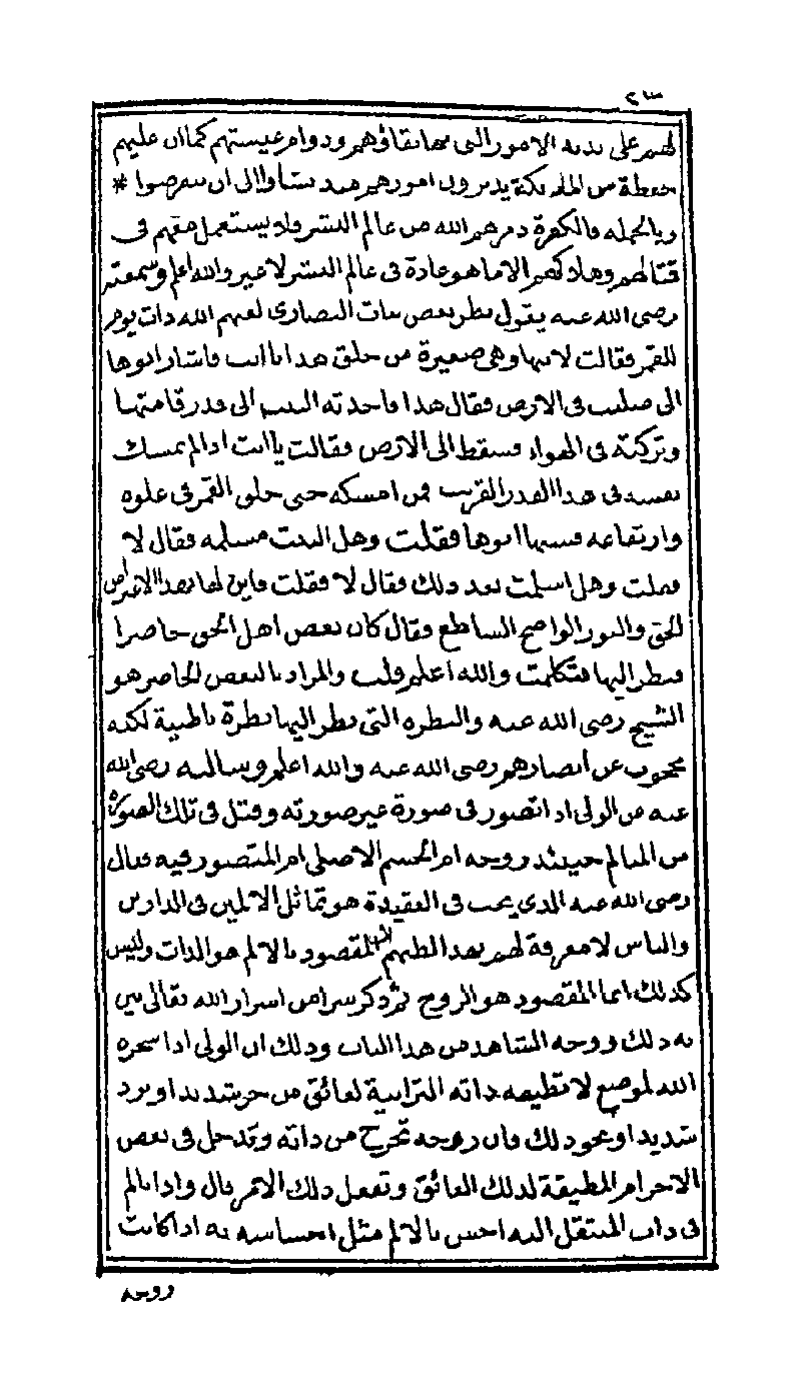 لهم على بدنه الامور التى بها بقاؤهم ودوام عيشتهم كما ان عليهم
حفظة من الملائكة يدبرون امورهم حيث شاؤا الى ان ينقرضوا *
وبالجملة فالكفرة دمرهم الله من عالم البشر فلا يستعمل معهم فى
قتالهم وهلاكهم الا ما هو عادة فى عالم البشر لا غير والله اعلم وسمعته
رضى الله عنه يقول نظر بعض بنات النصارى لعنهم الله ذات يوم
للقمر فقالت لابيها وهى صغيرة من خلق هذا يا ابت فاشار ابوها
الى صليب فى الارض فقال هذا فاخذته البنت الى قدر قامتها
وتركته فى الهواء فسقط الى الارض فقالت يا ابت اذا لم يمسك
نفسه فى هذا القدر القريب فمن امسكه حتى خلق القمر فى علوه
وارتفاعه فسبها ابوها فقلت وهل البنت مسلمة فقال لا
فقلت وهل اسلمت بعد ذلك فقال لا فقلت فاين لها بهذا الاعتراض
الحق والنور الواضح الساطع فقال كان بعض اهل الحق حاضرا
فنظر اليها فتكلمت والله اعلم قلت والمراد بالبعض الحاضر هو
الشيخ رضى الله عنه والنظرة التى نظر اليها نظرة باطنية لكنه
محجوب عن ابصارهم رضى الله عنه والله اعلم وسالته رضى الله
عنه عن الولى اذا تصور فى صورة غير صورته وقتل فى تلك الصورة
من المتالم حينئذ روحه ام الجسم الاصلى ام المتصور فيه فقال
رضى الله عنه الذى يجب فى العقيدة هو تماثل الالمين فى الدارين
والناس لا معرفة لهم بهذا لظنهم ان المقصود بالالم هو الذات وليس
كذلك انما المقصود هو الروح ثم ذكر سرا من اسرار الله تعالى بين
به ذلك ووجه المشاهد من هذا الباب وذلك ان الولى اذا سخره
الله لموضع لا تطيقه ذاته الترابية لعائق من حر شديد او برد
شديد او نحو ذلك فان روحه تخرج من ذاته وتدخل فى بعض
الاجرام المطيقة لذلك العائق وتفعل ذلك الامر قال واذا تالم
فى ذات المنتقل اليه احس بالالم مثل احساسه به اذا كانت
روحه